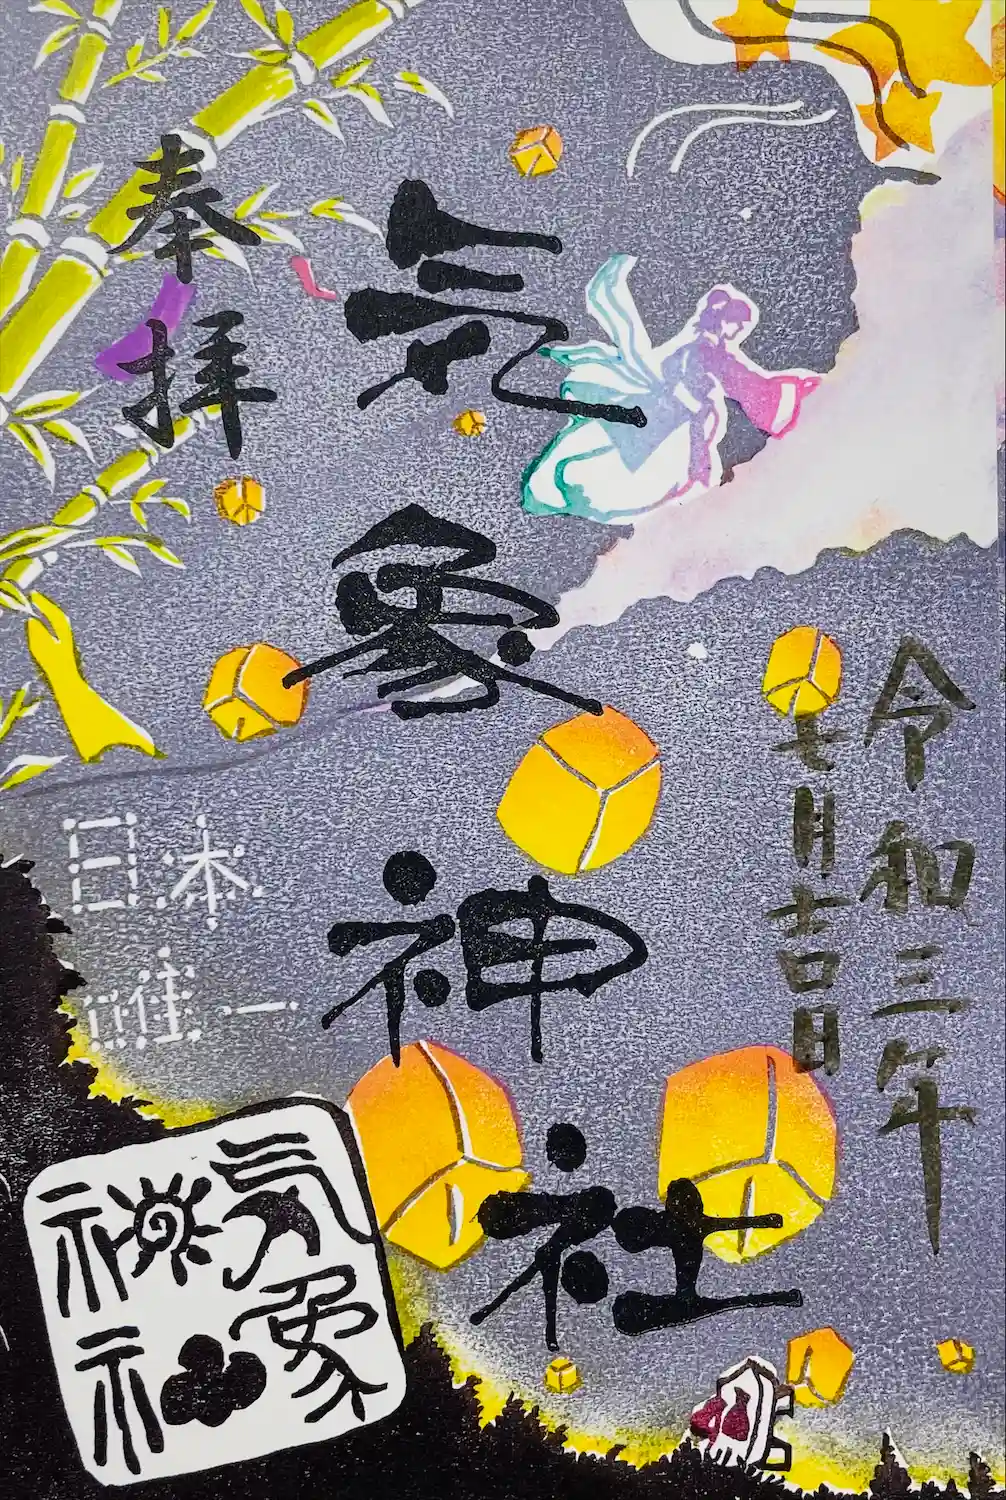 令和三年
七月吉日
気象神社
奉拝
日本
唯一
気象
神社